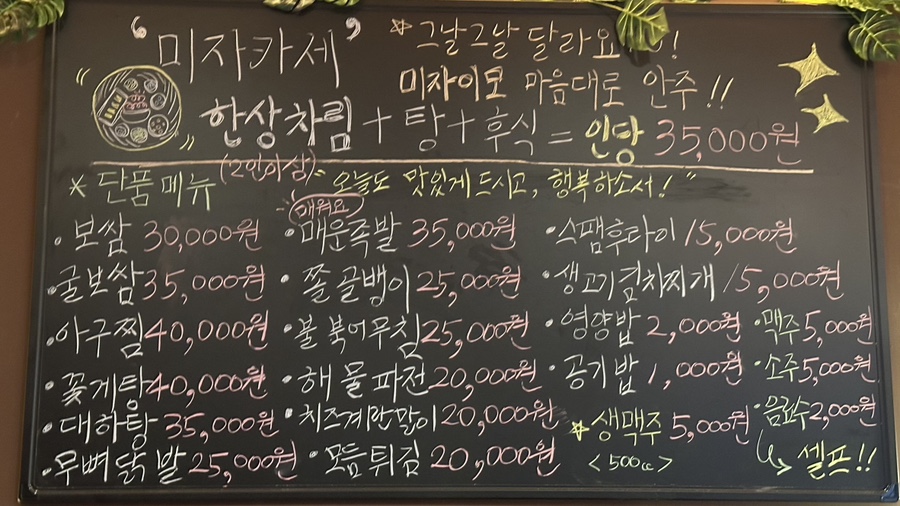 ‘미자카세’
* 그날그날 달라요~!
미자이모 마음대로 안주!!
한상차림 + 탕 + 후식 = 인당 35,000원
(2인이상)
* 단품메뉴 "오늘도 맛있게 드시고, 행복하소서!"
매워요
· 보쌈 30,000원 · 매운족발 35,000원 · 스팸후타이 15,000원
· 굴보쌈 35,000원 · 쫄골뱅이 25,000원 · 생고기김치찌개 15,000원
· 아구찜 40,000원 · 불북어무침 25,000원 · 영양밥 2,000원 · 맥주 5,000원
· 꽃게탕 40,000원 · 해물파전 20,000원 · 공기밥 1,000원 · 소주 5,000원
· 대하탕 35,000원 · 치즈계란말이 20,000원 * 생맥주 5,000원 · 음료수 2,000원
<500cc> 셀프!!
· 무뼈닭발 25,000원 · 모듬튀김 20,000원